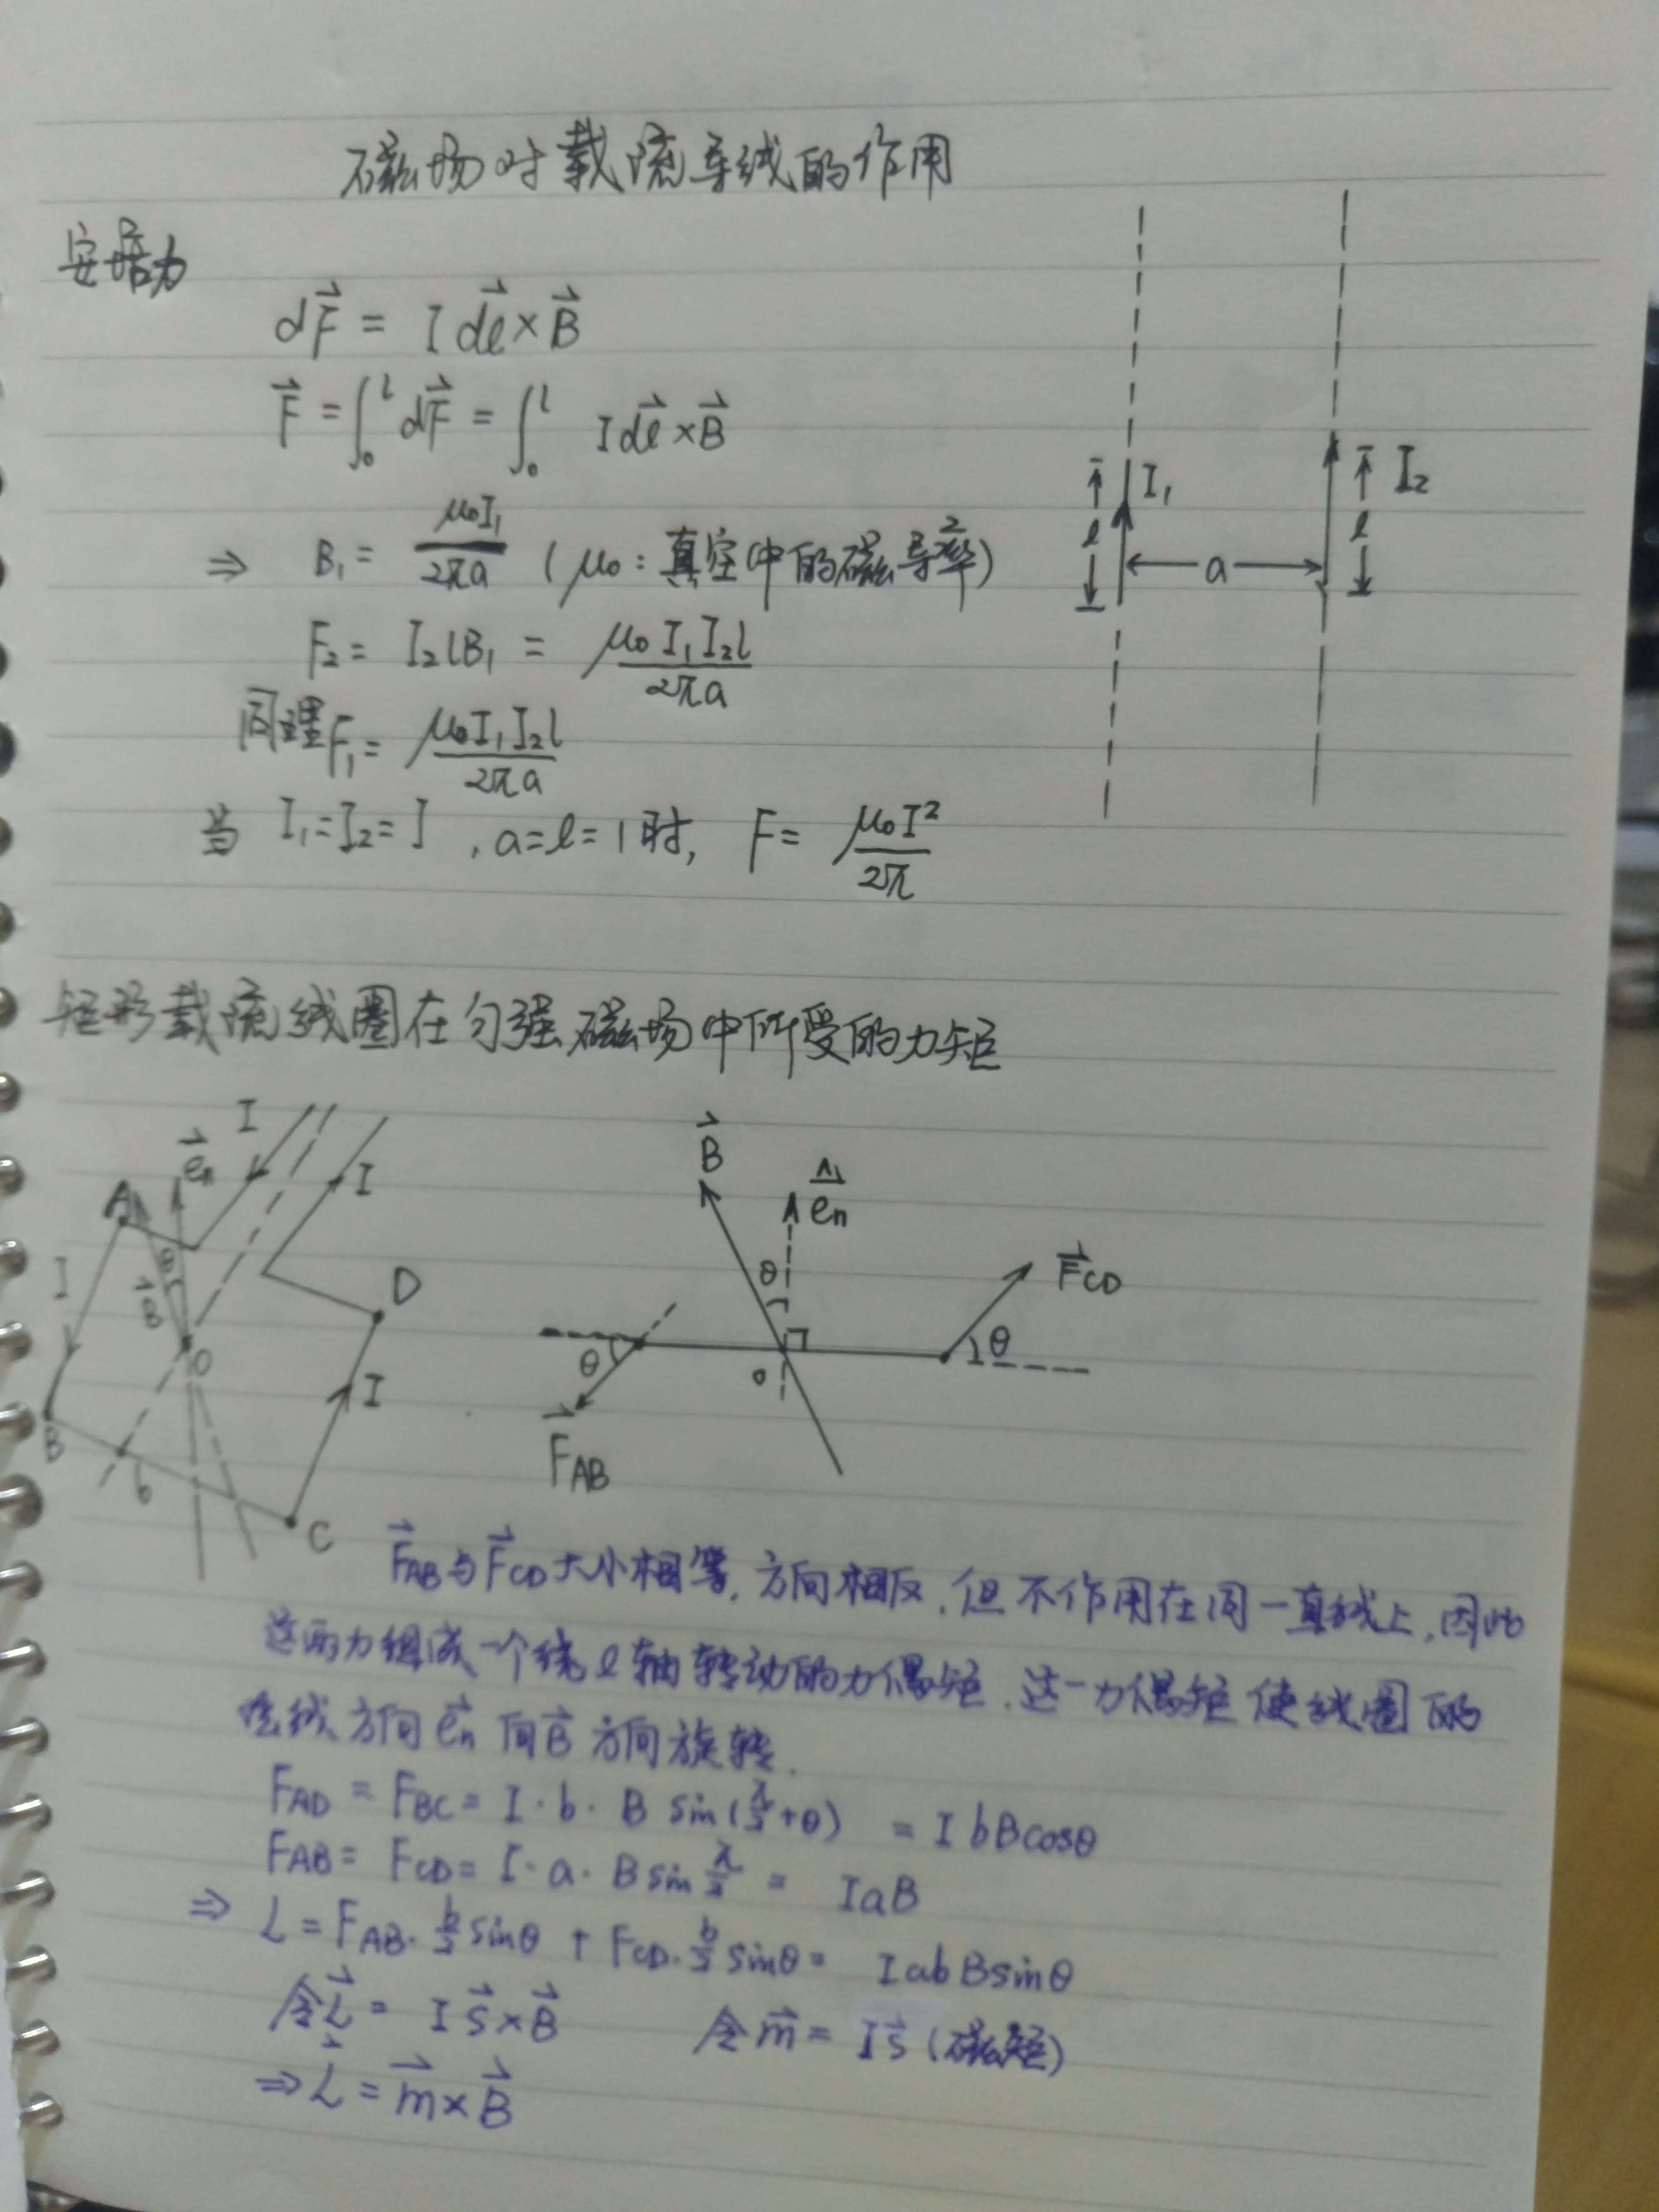 磁场对载流导线的作用
安培力
dF⃗ = I dl⃗ × B⃗
F⃗ = ∫₀ˡ dF⃗ = ∫₀ˡ I dl⃗ × B⃗
⇒ B₁ = μ₀I₁/2πa (μ₀: 真空中的磁导率)
F₂ = I₂lB₁ = μ₀I₁I₂l/2πa
同理 F₁ = μ₀I₁I₂l/2πa
当 I₁=I₂=I, a=l=1时, F = μ₀I²/2π
l I₁ a l I₂
矩形载流线圈在匀强磁场中所受的力矩
I e⃗n I A I θ B⃗ O D I B b C
B⃗ e⃗n θ F⃗CD θ θ o F⃗AB
F⃗AB与F⃗CD大小相等,方向相反,但不作用在同一直线上,因此
这两力组成一个绕l轴转动的力偶矩,这一力偶矩使线圈的
法线方向e⃗n向B⃗方向旋转.
FAD = FBC = I·b·B sin(π/2+θ) = IbBcosθ
FAB = FCD = I·a·B sin π/2 = IaB
⇒ L = FAB·b/2 sinθ + FCD·b/2 sinθ = IabBsinθ
令L⃗ = IS⃗×B⃗ 令m⃗ = IS⃗ (磁矩)
⇒ L⃗ = m⃗×B⃗